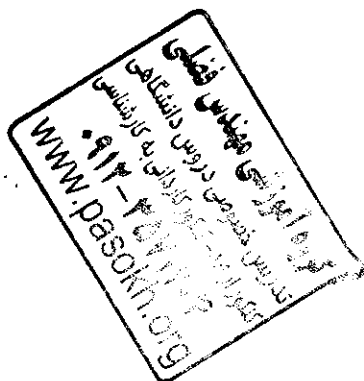 گروه آموزشی مهندس فضلی
تدریس خصوصی دروس دانشگاهی
کاردانی به کارشناسی
۰۹۱۲-
www.pasokh.org